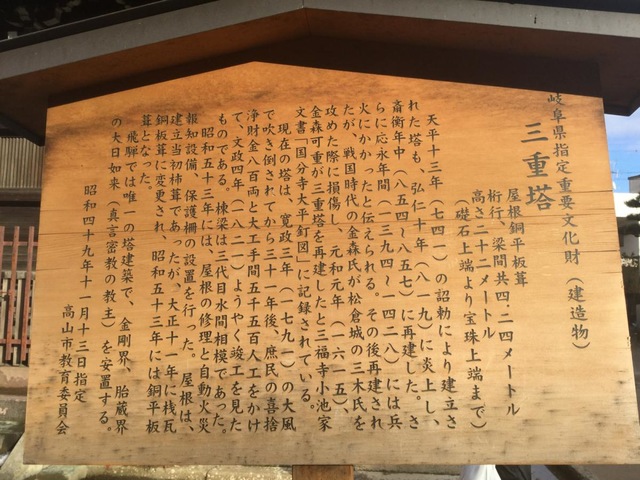 岐阜県指定重要文化財（建造物）
三重塔
屋根銅平板葺
桁行、梁間共四・二四メートル
高さ二十二メートル
（礎石上端より宝珠上端まで）
天平十三年（七四一）の詔勅により建立さ
れた塔も、弘仁十年（八一九）に炎上し、
斎衡年中（八五四～八五七）に再建した。さ
らに応永年間（一三九四～一四二八）には兵
火にかかったと伝えられる。その後再建され
たが、戦国時代の金森氏が松倉城の三木氏を
攻めた際に損傷し、元和元年（一六一五）、
金森可重が三重塔を再建したと三福寺小池家
文書「国分寺大平釘図」に記録されている。
現在の塔は、寛政三年（一七九一）の大風
で吹き倒されてから三十一年後、庶民の喜捨
浄財金八百両と大工手間五千五百人工をかけ
て、文政四年（一八二一）ようやく竣工を見た
ものである。棟梁は三代目水間相模であった。
昭和五十三年には、屋根の修理と自動火災
報知設備、保護柵の設置を行った。屋根は、
建立当初柿葺であったが、大正十一年に桟瓦
銅板葺に変更され、昭和五十三年には銅平板
葺となった。
飛騨では唯一の塔建築で、金剛界、胎蔵界
の大日如来（真言密教の教主）を安置する。
昭和四十九年十一月十三日指定
高山市教育委員会